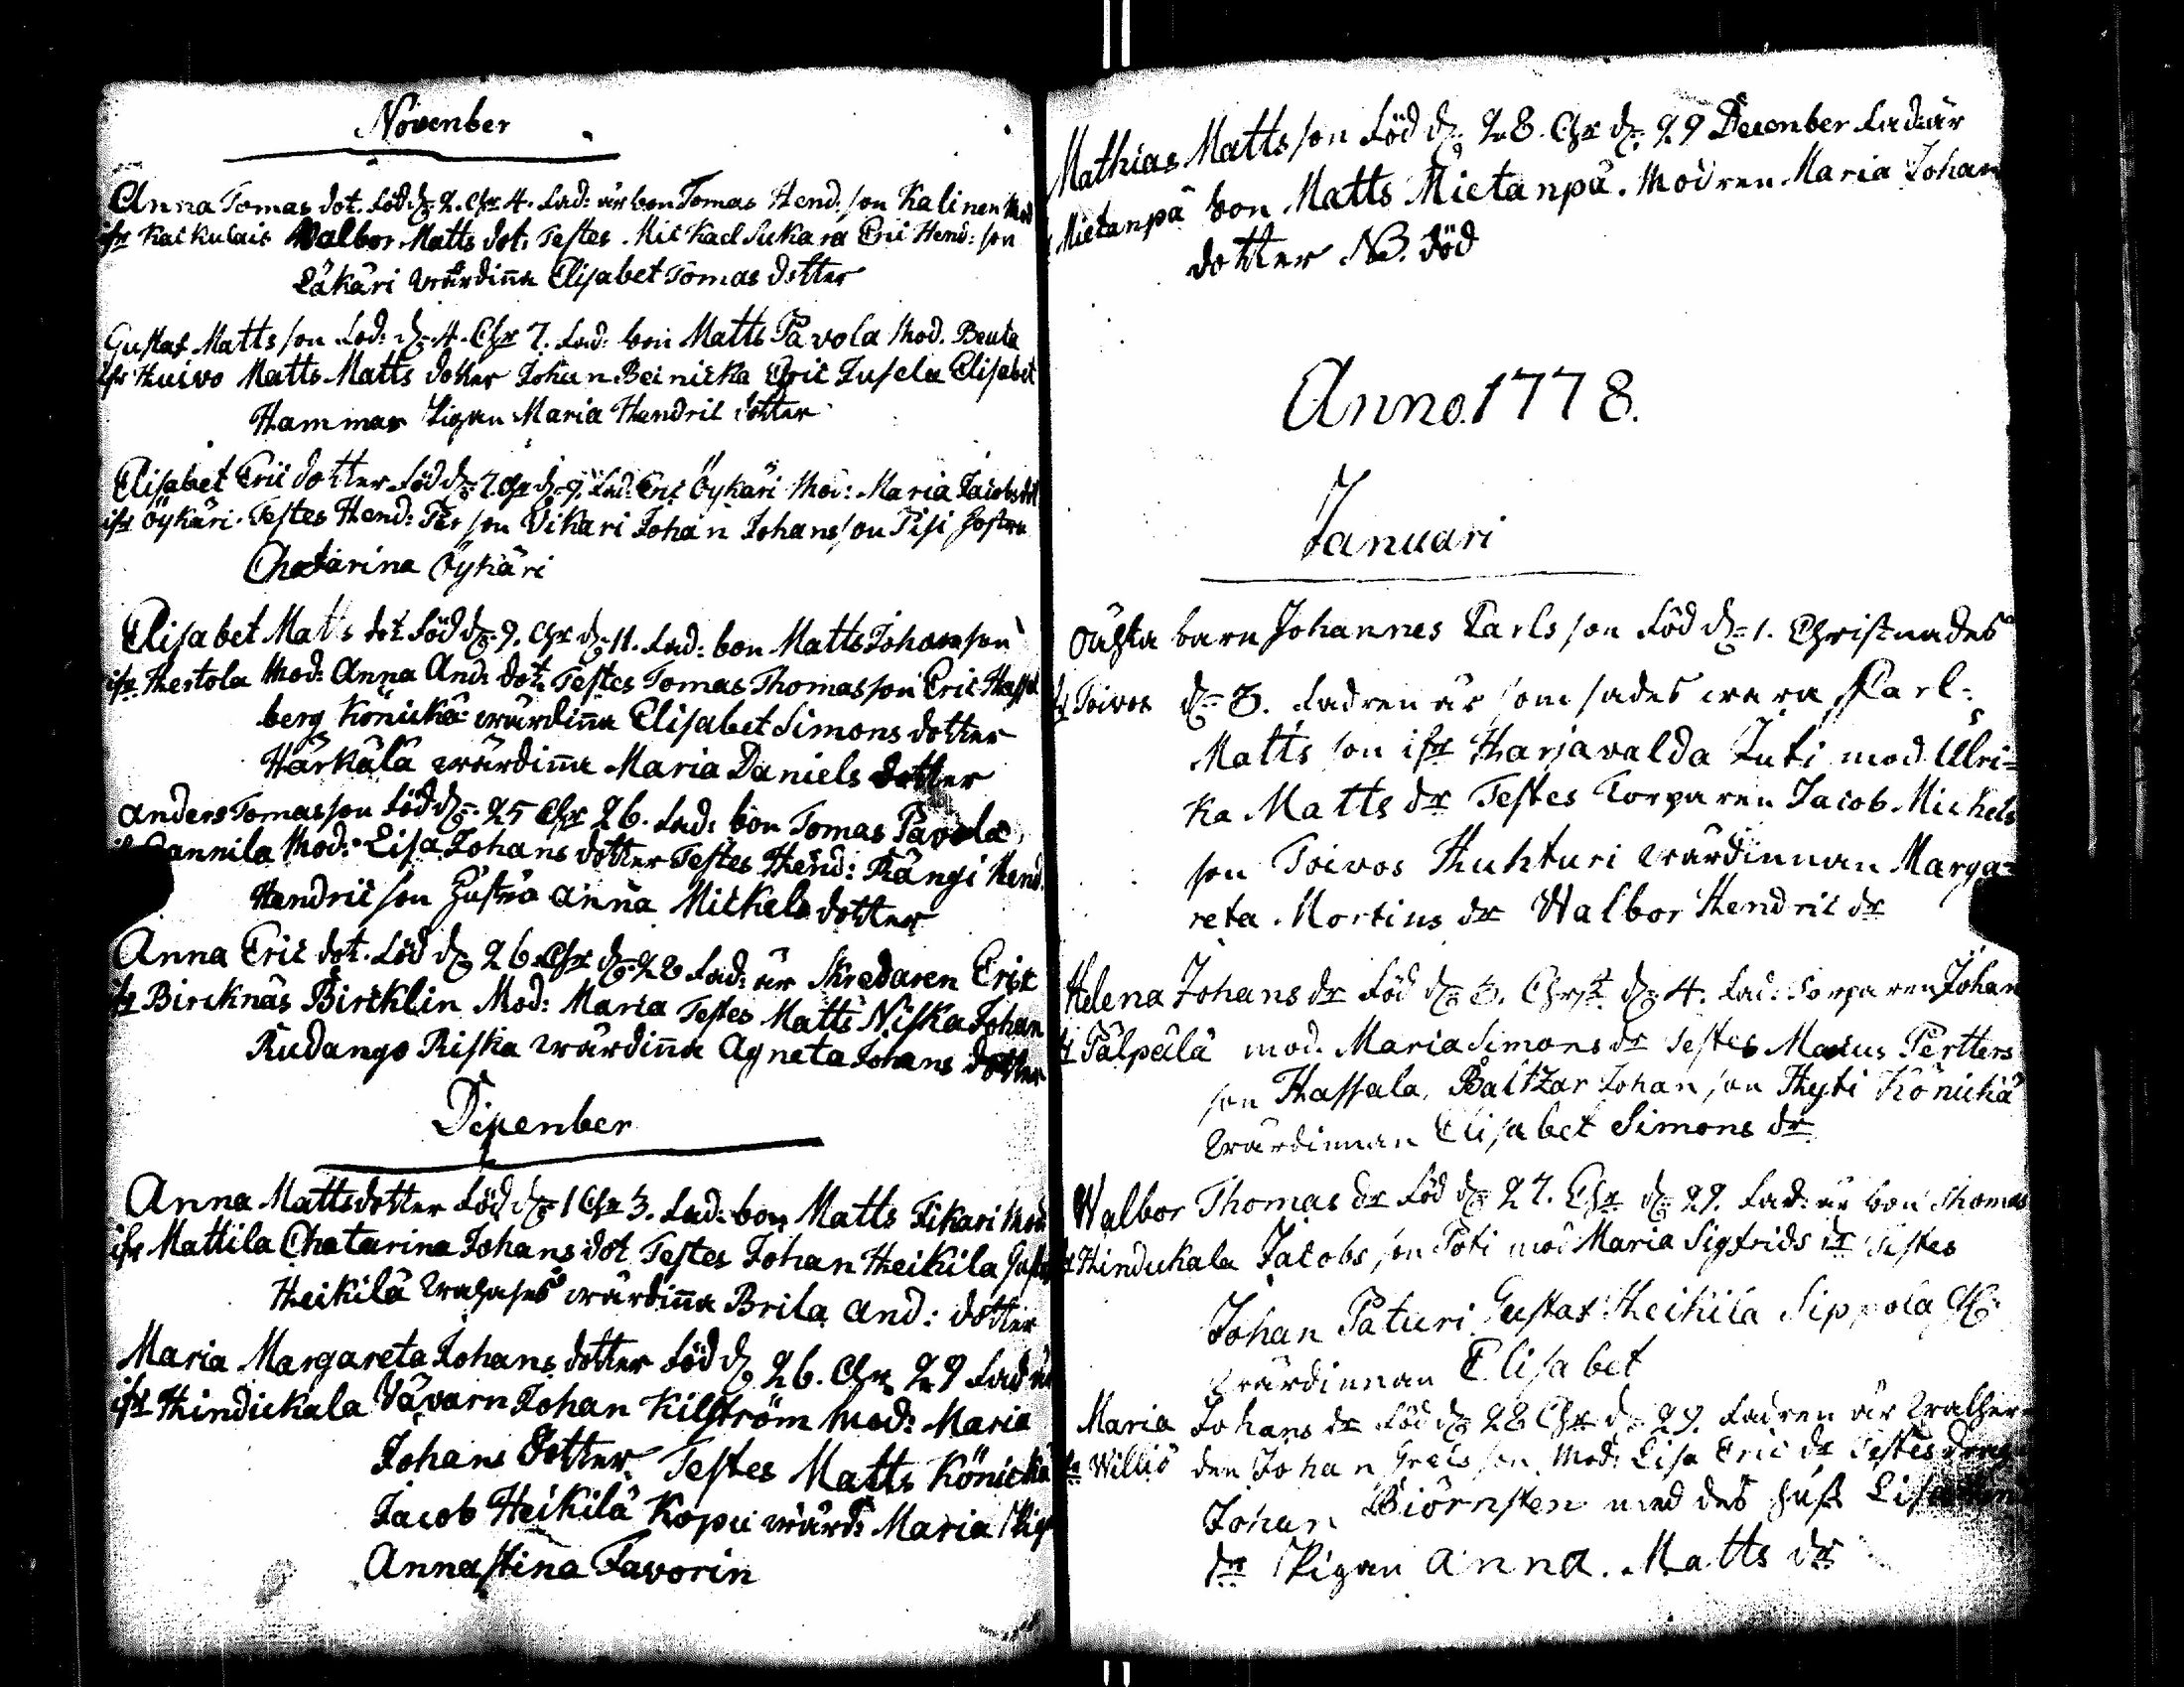 November
Anna Tomas dot. född d. 2. Chr 4. Fad: är bon Tomas Hend: son Kalinen Mod
ifr Kaikulais Walbor Matts dot: Testes Mickael Sukara Eric Hend: son
Läkäri wärdinna Elisabet Tomas dotter
Gustaf Matts son Föd: d. 4. Chr 7. Fad: bon Matts Pavola Mod. Beata
ifr Huivo Matts Matts dotter Johan Beinicka Eric Jusela Elisabet
Hammar Pigan Maria Hendric dotter
Elisabet Eric dotter född d. 7. Chr d. 9. Fad: Eric Öykäri Mod: Maria Jacobs dot
ifr Öykäri Testes Hend: Per son Vikari Johan Johans son Pisi hustru
Chatarina Öykäri
Elisabet Matts dot född d. 9. Chr d. 11. Fad: bon Matts Johan son
ifr Hertola Mod: Anna And: dot. Testes Tomas Thomas son Eric Hassel
berg Könickä wärdinna Elisabet Simons dotter
Härkälä wärdinna Maria Daniels dotter
Anders Tomas son född d. 25 Chr 26. Fad: bon Tomas Pavola
Mod: Lisa Johans dotter Testes Hend: Rängi Hend.
Hendric son hustru Anna Mickels dotter
Anna Eric dot. född d. 26. Chr d. 28 Fad: är Skredaren Eric
ifr Bircknäs Bircklin Mod: Maria Testes Matts Niska Johan
Rudango Riska wärdinna Agneta Johans dotter
December
Anna Matts dotter född d. 1 Chr 3. Fad: bon Matts Fikari Mod
ifr Mattila Chatarina Johans dot Testes Johan Heikila Gustaf
Heikilä wärdinna Brita And: dotter
Maria Margareta Johans dotter född d. 26. Chr 29 Fad är
ifr Hindickala Vävarn Johan Kilström Mod: Maria
Johans Dotter Testes Matts Könickä
Jacob Heikilä Kopu wärd: Maria Pig
Annastina Favorin
Mathias Matts son född d. 28. Chr d. 29 December Fad: är
Mietanpä bon Matts Mietanpä. Modren Maria Johan
dotter NB. död
Anno. 1778.
Januari
Oächta barn Johannes Carls son född d. 1. Christnades
fr Toivos d. 3. Fadren är som sades wara Karl
Matts son ifr Harjavalda Juti mod Ulri=
ka Matts dr Testes Torparen Jacob Mickels
son Toivos Huhturi wärdinnan Marga=
reta Mortins dr Walbor Hendric dr
Helena Johans dr född d. 3. Christ d. 4. Fad: Torparen Johan
fr Pälpälä mod. Maria Simons dr Testes Marcus Pertters
son Hassala, Baltzar Johan son Hyti Könickä
wärdinnan Elisabet Simons dr
Walbor Thomas dr född d. 27. Chr d. 29. Fad: är bon Thomas
fr Hindickala Jacobs son Poti mod Maria Sigfrids dr Testes
Johan Paturi Gustaf Heikila Sippola
wärdinnan Elisabet
Maria Johans dr född d. 28 Chr d. 29. Fadren är
fr Willis den Johan Grels son Mod: Lisa Eric dr Testes Dreng
Johan Biörnsten med des hust Lisa
dr Pigan Anna. Matts dr